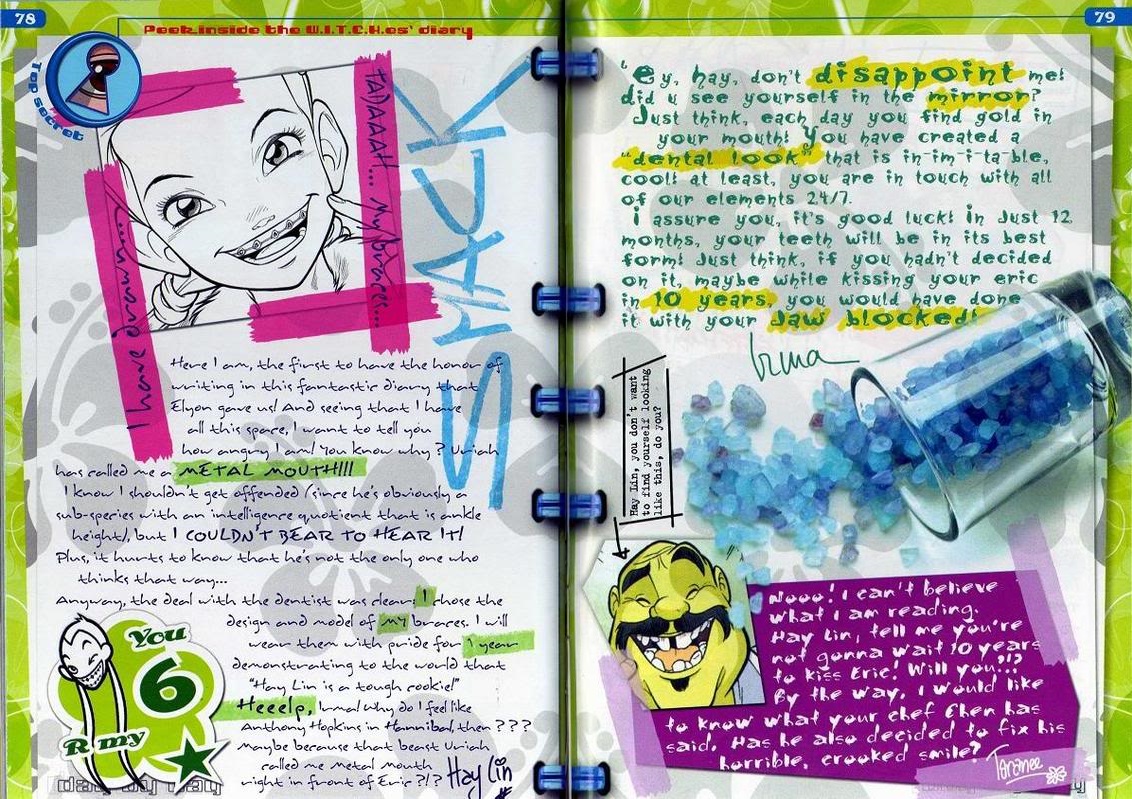 78
Peek inside the W.I.T.C.H.es' diary
Top secret
TADAAAH... My braces...
I have drawn...
SMACK
Here I am, the first to have the honor of
writing in this fantastic diary that
Elyon gave us! And seeing that I have
all this space, I want to tell you
how angry I am! You know why? Uriah
has called me a METAL MOUTH!!!
I know I shouldn't get offended (since he's obviously a
sub-species with an intelligence quotient that is ankle
height), but I COULDN'T BEAR TO HEAR IT!
Plus, it hurts to know that he's not the only one who
thinks that way...
Anyway, the deal with the dentist was clear: I chose the
design and model of my braces. I will
wear them with pride for 1 year
demonstrating to the world that
"Hay Lin is a tough cookie!"
Heeelp, Irma! Why do I feel like
Anthony Hopkins in Hannibal then???
Maybe because that beast Uriah
called me metal mouth
right in front of Eric?!?
Hay Lin
You
6
R my
79
'Ey, hay, don't disappoint me!
did u see yourself in the mirror?
Just think, each day you find gold in
your mouth! You have created a
"dental look" that is in-im-i-ta-ble,
cool! at least, you are in touch with all
of our elements 24/7.
i assure you, it's good luck! in Just 12
months, your teeth will be in its best
form! Just think, if you hadn't decided
on it, maybe while kissing your eric
in 10 years, you would have done
it with your Jaw blocked!
Irma
Hay Lin, you don't want
to find yourself looking
like this, do you?
Nooo! I can't believe
what I am reading.
Hay Lin, tell me you're
not gonna wait 10 years
to kiss Eric! Will you?!?
By the way, I would like
to know what your chef Chen has
said. Has he also decided to fix his
horrible, crooked smile?
Taranee